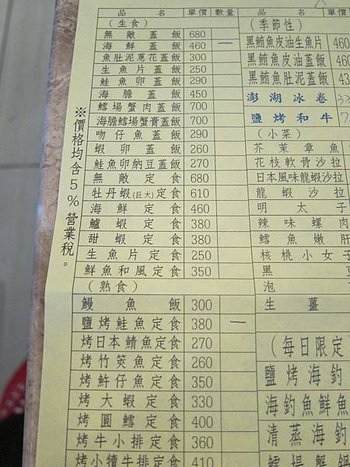 品名 單價 數量
(生食)
無敵蓋飯 680
海鮮蓋飯 460 一
魚肚泥蔥花蓋飯 300
生魚片蓋飯 250
鮭魚卵蓋飯 290
海膽蓋飯 450
鱈場蟹肉蓋飯 700
海膽鱈場蟹膏蓋飯 700
吻仔魚蓋飯 290
蝦卵蓋飯 260
鮭魚卵納豆蓋飯 260
無敵定食 680
牡丹蝦(巨大)定食 610
海鮮定食 460
鱸蝦定食 380
甜蝦定食 380
生魚片定食 250
鮮魚和風定食 350
(熟食)
鰻魚飯 300
鹽烤鮭魚定食 380 一
烤日本鯖魚定食 270
烤竹筴魚定食 260
烤魽仔魚定食 350
烤大蝦定食 330
烤圓鱈定食 400
烤牛小排定食 360
烤小犢牛排定食 410
※價格均含5%營業稅。
品名
(季節性)
黑鮪魚皮油生魚片 460
黑鮪魚皮油蓋飯 460
黑鮪魚肚蓋飯 430
澎湖冰卷
鹽烤和牛
(小菜)
芥茉章魚
花枝軟骨沙拉
日本風味龍蝦沙拉
龍蝦沙拉
明太子
辣味螺肉
鱈魚嫩肝
核桃小女子
黑豆
泡
生薑
(每日限定
鹽烤海釣
海釣魚鮮魚
清蒸海釣
鱈場蟹鍋